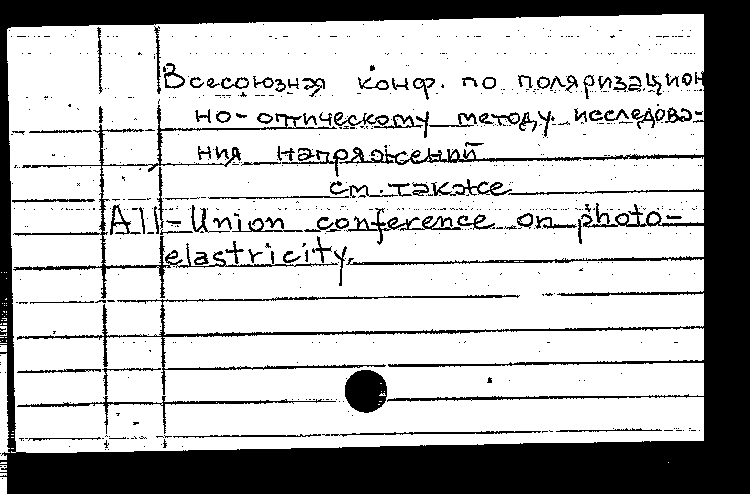 Всесоюзная конф. по поляризацион
но-оптическому методу исследова-
ния напряжений
см. также
All-Union conference on photo-
elastricity.